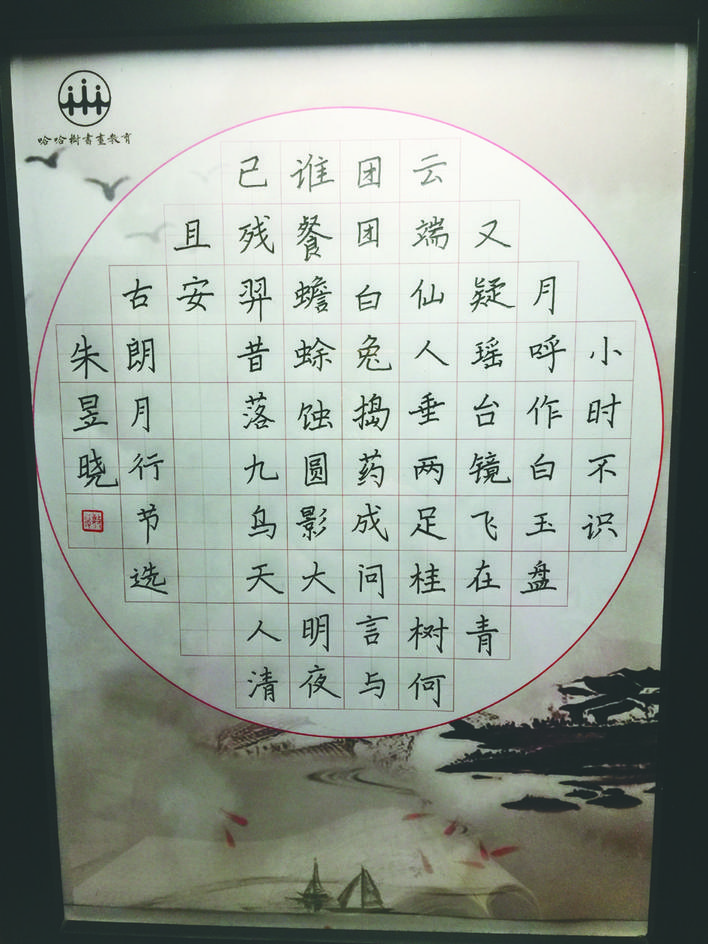 哈哈樹書畫教育
小时不识
月呼作白玉盘
又疑瑶台镜飞在青
云端仙人垂两足桂树何
团团白兔捣药成问言与
谁餐蟾蜍蚀圆影大明夜
已残羿昔落九鸟天人清
且安
古朗月行节选
朱昱晓